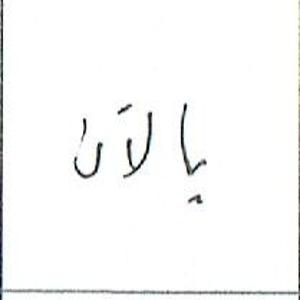 يالآن